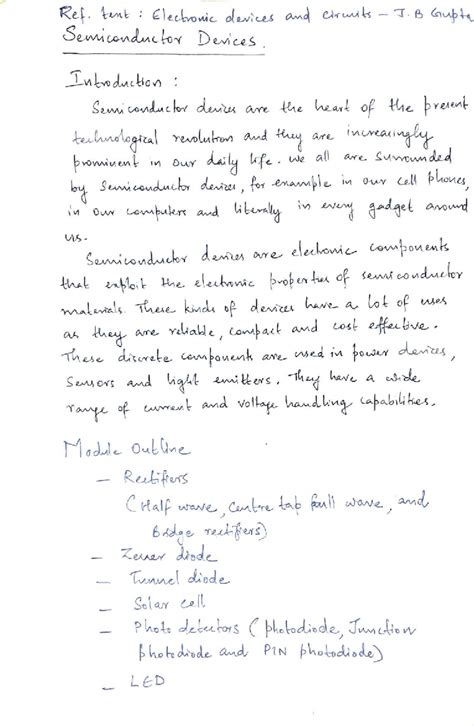 Ref. text : Electronic devices and circuits - J.B Gupta
Semiconductor Devices.
Introduction :
Semiconductor devices are the heart of the present
technological revolution and they are increasingly
prominent in our daily life. We all are surrounded
by semiconductor devices, for example in our cell phones,
in our computers and literally in every gadget around
us.
Semiconductor devices are electronic components
that exploit the electronic properties of semiconductor
materials. These kinds of devices have a lot of uses
as they are reliable, compact and cost effective.
These discrete components are used in power devices,
sensors and light emitters. They have a wide
range of current and voltage handling capabilities.
Module Outline
- Rectifiers
(Half wave, centre tap full wave, and
Bridge rectifiers)
- Zener diode
- Tunnel diode
- Solar cell
- Photo detectors (photodiode, Junction
photodiode and PIN photodiode)
- LED